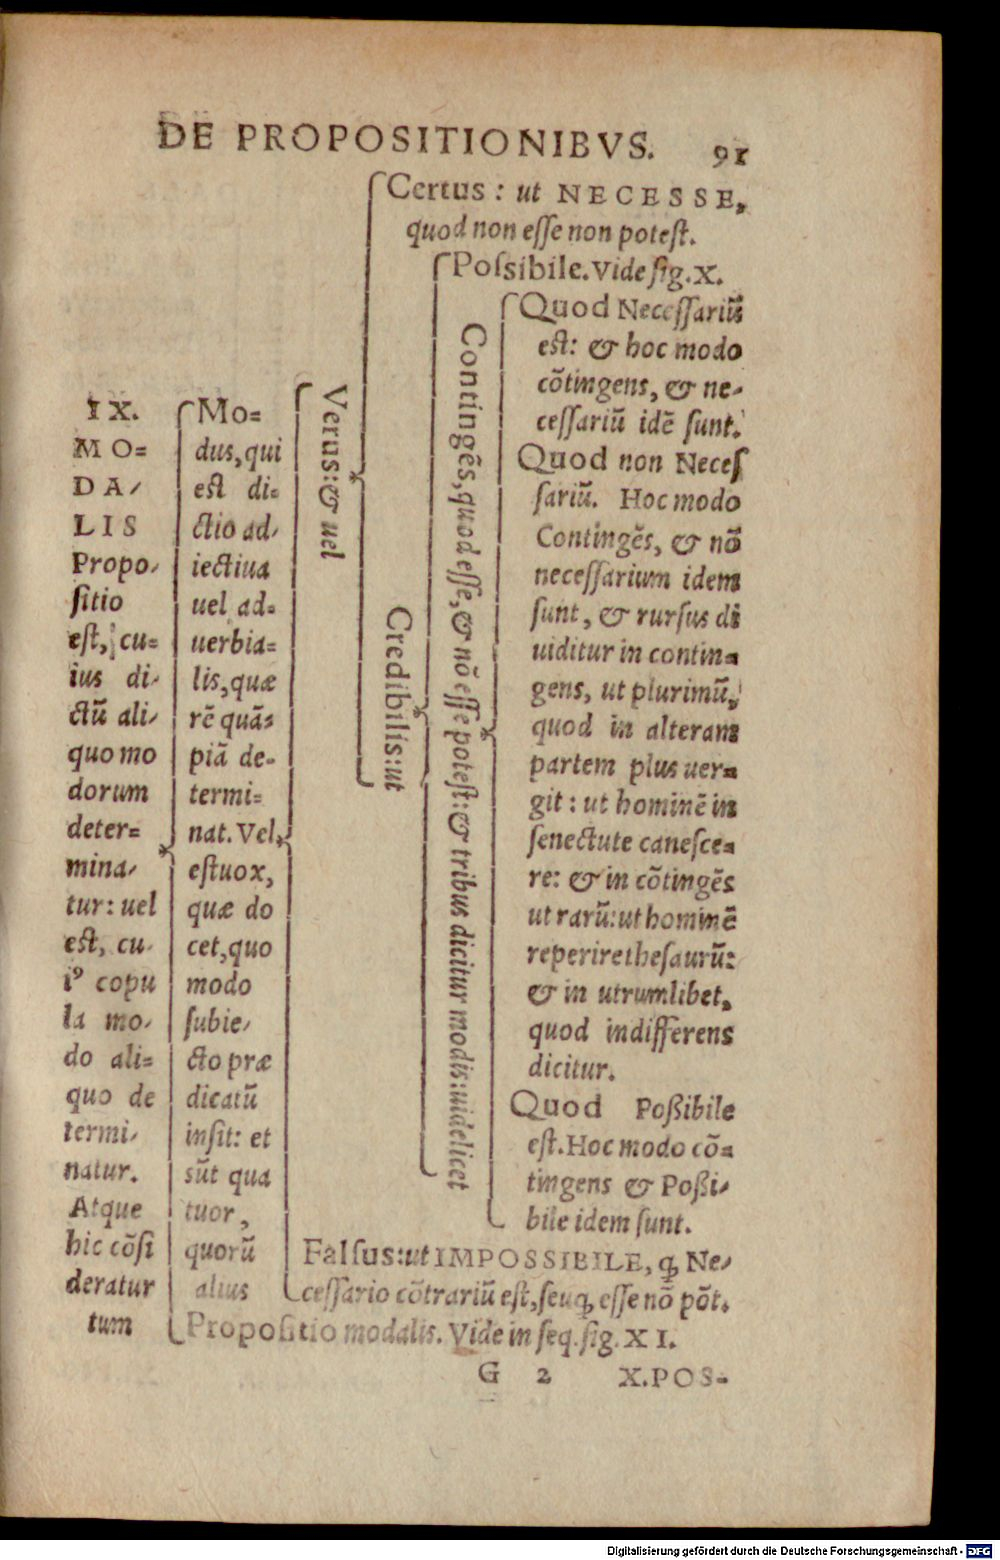 DE PROPOSITIONIBVS. 91
IX.
MO=
DA/
LIS
Propo/
ſitio
eſt, cu=
ius di/
ctũ ali/
quo mo
dorum
deter=
mina/
tur: uel
eſt, cu/
iꝰ copu
la mo/
do ali=
quo de
termi/
natur.
Atque
hic cõſi
deratur
tum
Mo=
dus, qui
eſt di=
ctio ad/
iectiua
uel ad=
uerbia=
lis, quæ
rẽ quãs
piã de=
termi=
nat. Vel,
eſt uox,
quæ do
cet, quo
modo
ſubie/
cto præ
dicatũ
inſit: et
sũt qua
tuor,
quorũ
alius
Verus: & uel
Certus: ut NECESSE,
quod non eſſe non poteſt.
Credibilis: ut
Poſsibile. Vide fig. X.
Contingẽs, quod eſſe, & nõ eſſe poteſt: & tribus dicitur modis: uidelicet
Quod Neceſſariũ
eſt: & hoc modo
cõtingens, & ne=
ceſſariũ idẽ ſunt.
Quod non Neceſ
ſariũ. Hoc modo
Contingẽs, & nõ
neceſſarium idem
ſunt, & rurſus di
uiditur in contin=
gens, ut plurimũ,
quod in alteram
partem plus uer=
git: ut hominẽ in
ſenectute caneſce=
re: & in cõtingẽs
ut rarũ: ut hominẽ
reperire theſaurũ:
& in utrumlibet,
quod indifferens
dicitur.
Quod Poßibile
eſt. Hoc modo cõ=
tingens & Poßi/
bile idem ſunt.
Falſus: ut IMPOSSIBILE, ꝗ Ne/
ceſſario cõtrariũ eſt, ſeuꝗ eſſe nõ põt.
Propoſitio modalis. Vide in ſeq. fig. XI.
G 2 X. POS=
Digitalisierung gefördert durch die Deutsche Forschungsgemeinschaft - DFG